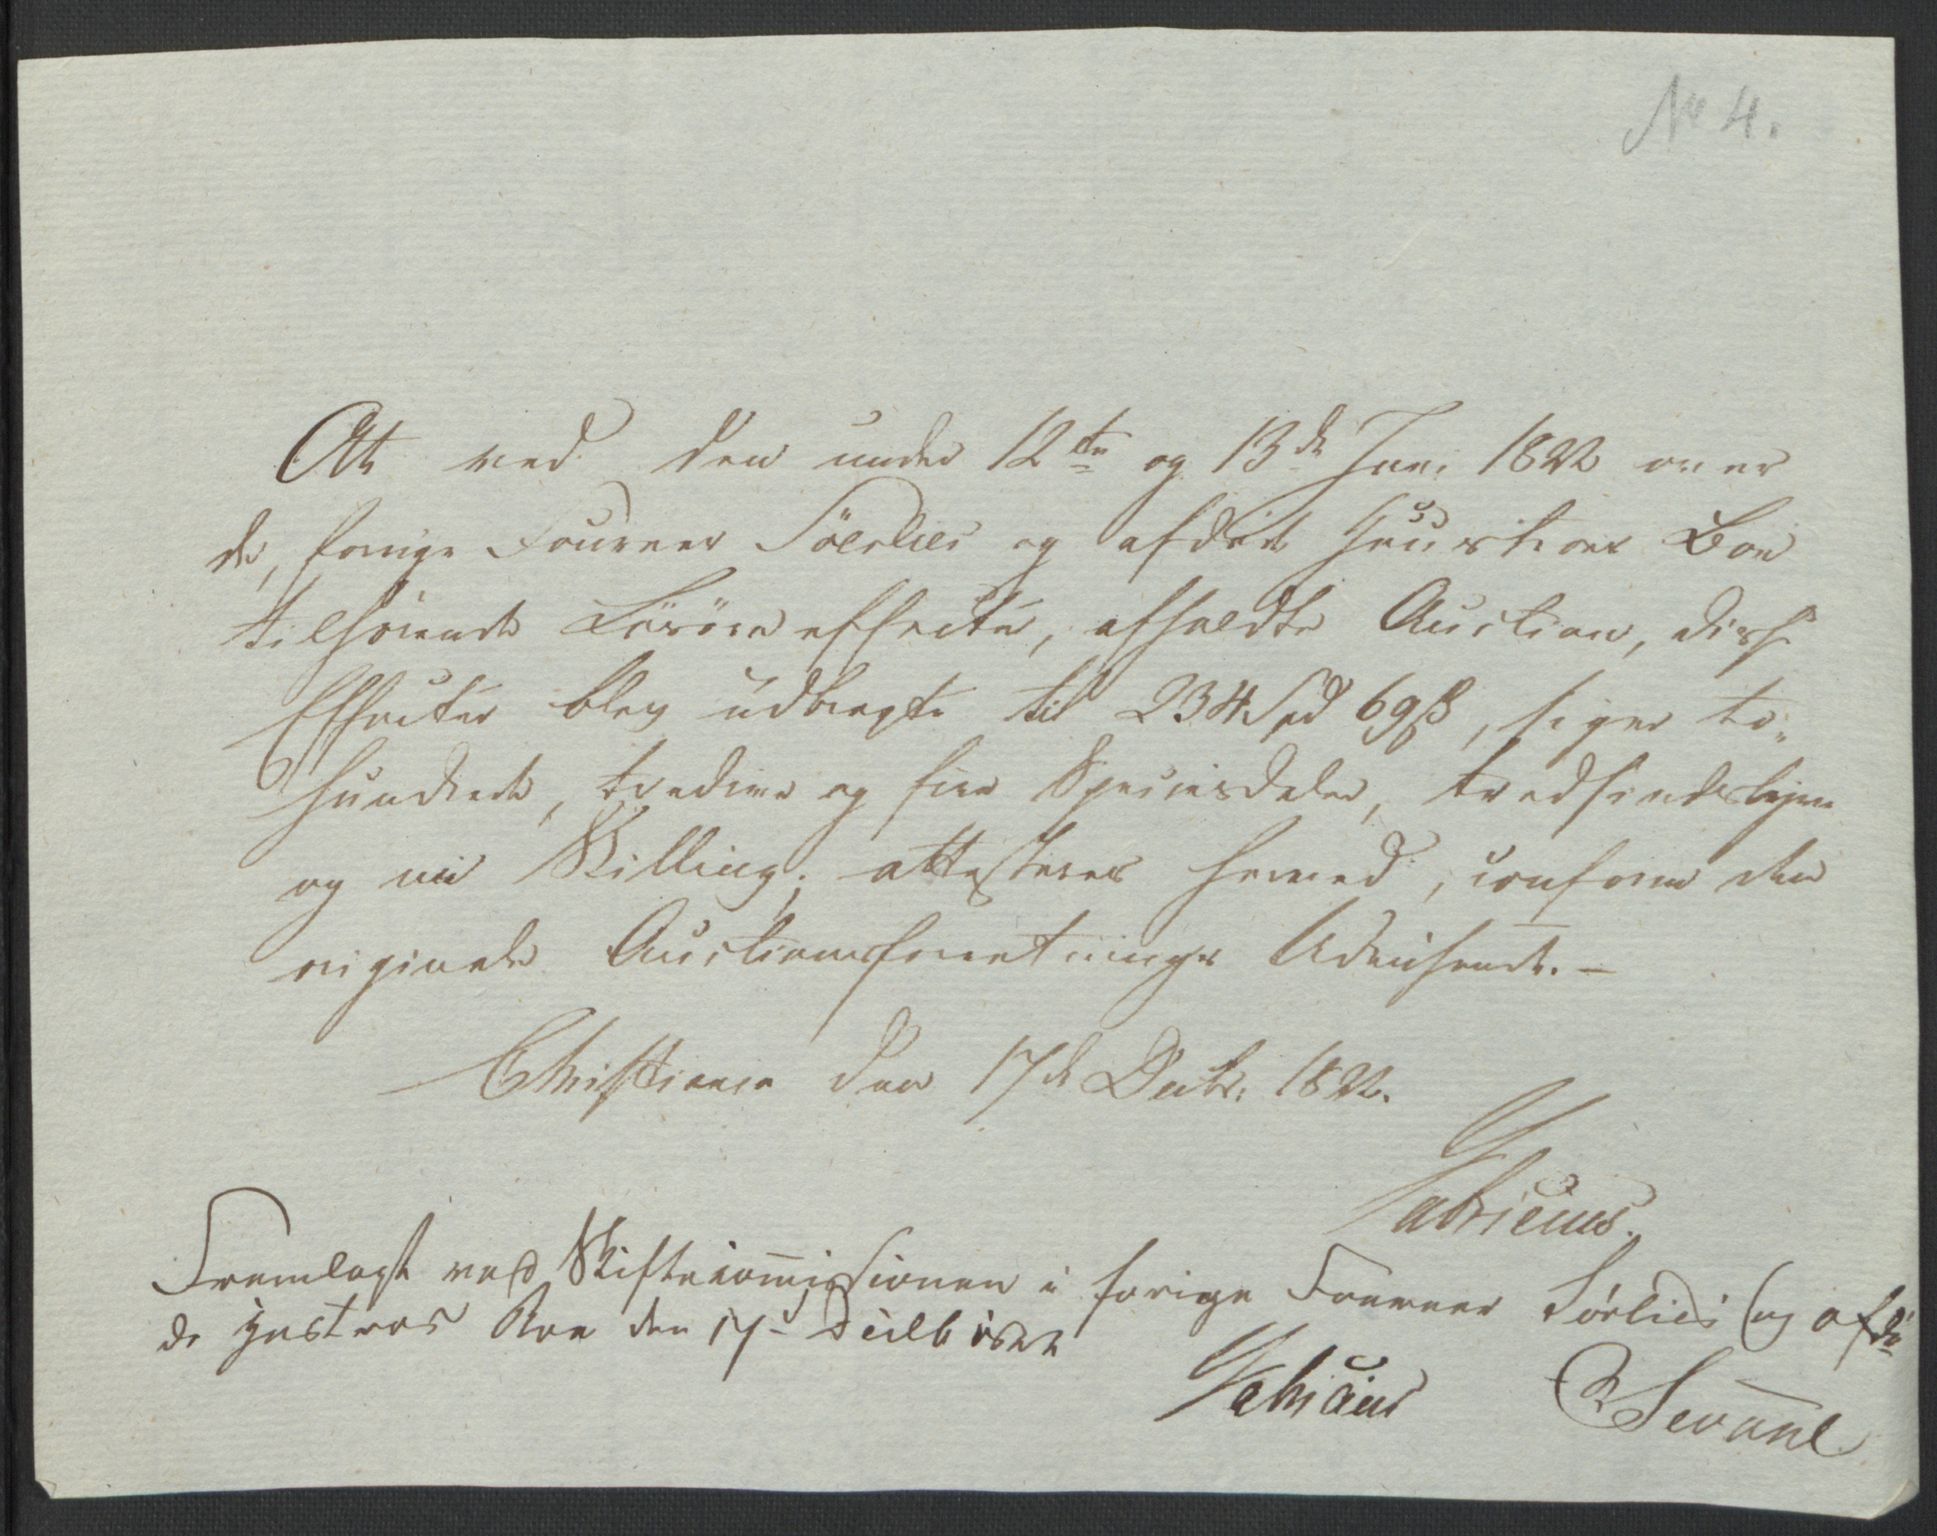 No 4.
At ved den under 12te og 13de Juni 1822 over
de, forrige Foureer Söerlies og afdøde Hustrues Boe
tilhørende Løsøre effecter, afholdte Auction, disse
Effecter blev udbragte til 234 Spd 69 ß, siger to
hundrede, tredive og fire Speciesdaler, tredsindstyve
og ni Skilling; attesteres herved, conform den
originale Auctionsforretnings Udvisende. -
Christiania den 17de Decbr. 1822.
Fabricius.
Fremlagt ved Skiftecommissionen i forrige Foureer Sörlies og afdö-
de Hustrues Boe den 17de Decbr 1822
Fabricius